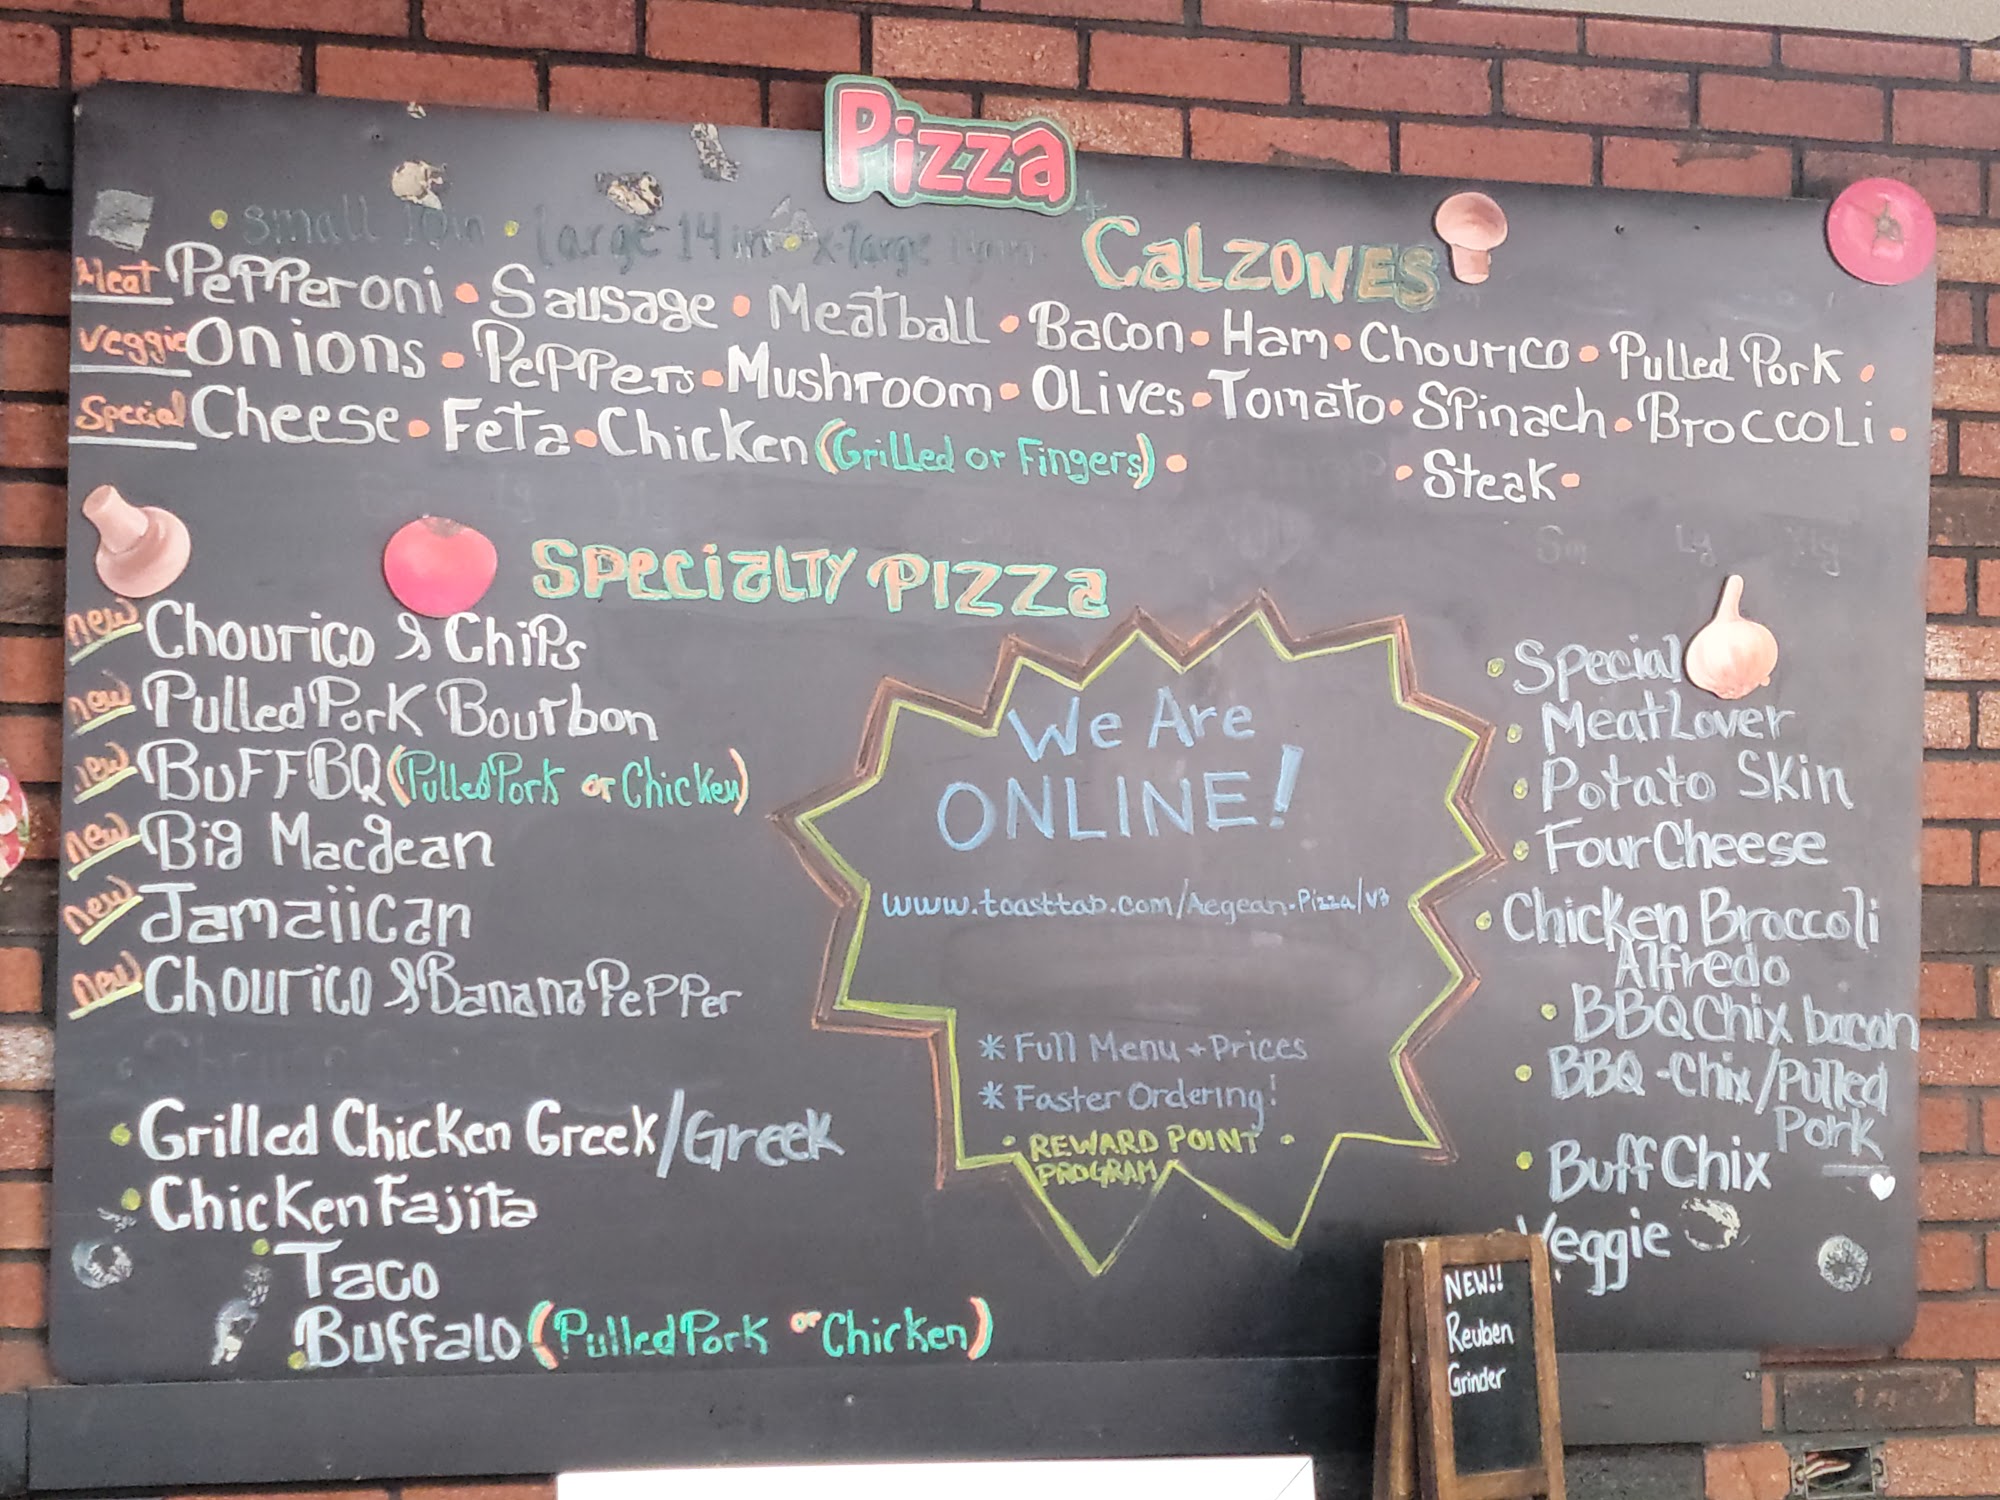 Pizza
small 10in • large 14in • x-large
+ Calzones
Meat Pepperoni • Sausage • Meatball • Bacon • Ham • Chourico • Pulled Pork •
Veggie Onions • Peppers • Mushroom • Olives • Tomato • Spinach • Broccoli •
Special Cheese • Feta • Chicken (Grilled or Fingers) • • Steak •
Sm Lg Xlg
Specialty Pizza
new Chourico & Chips
new Pulled Pork Bourbon
new Buff BBQ (Pulled Pork or Chicken)
new Big Macgean
new Jamaiican
new Chourico & Banana Pepper
• Grilled Chicken Greek/Greek
• Chicken Fajita
• Taco
• Buffalo (Pulled Pork or Chicken)
We Are
ONLINE!
www.toasttab.com/Aegean-Pizza/v3
* Full Menu + Prices
* Faster Ordering!
• REWARD POINT •
PROGRAM
• Special
• Meat Lover
• Potato Skin
• Four Cheese
• Chicken Broccoli
Alfredo
• BBQ Chix bacon
• BBQ-Chix/Pulled
Pork
• Buff Chix
Veggie
NEW!!
Reuben
Grinder